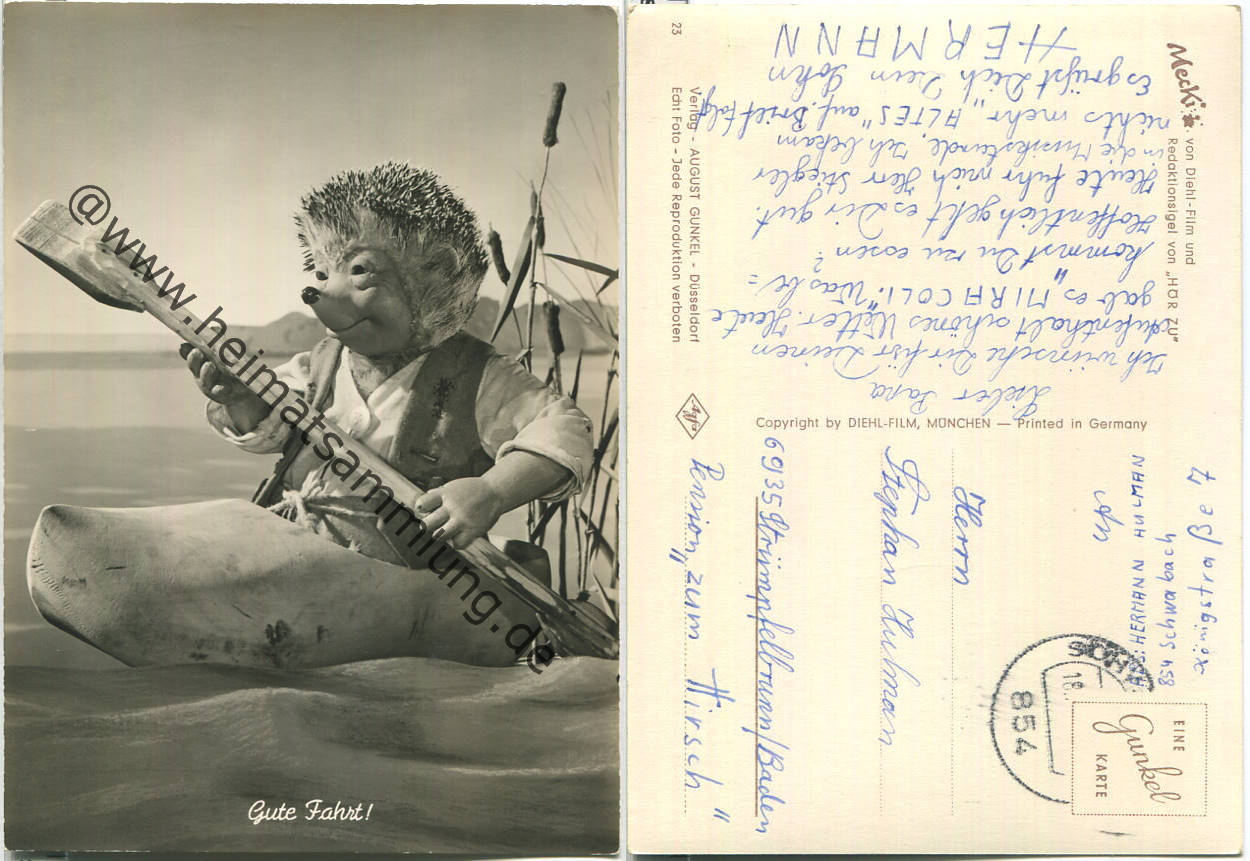 @www.heimatsammlung.de
Gute Fahrt!
Lieber Papa
Ich wünsche Dir für Deinen
Aufenthalt schönes Wetter. Heute
gab es „MIRACOLI". Was be=
kommst Du zu essen?
Hoffentlich geht es Dir gut.
Heute fuhr mich Herr Stiegler
in die Musikstunde. Ich bekam
nichts mehr „ALTES" auf. Brief folgt
Es grüßt Dich Dein Sohn
HERMANN
Mecki
von Diehl-Film und
Redaktionsigel von „HÖR ZU"
Copyright by DIEHL-FILM, MÜNCHEN — Printed in Germany
23
Verlag - AUGUST GUNKEL - Düsseldorf
Echt Foto - Jede Reproduktion verboten
Agfa
ABS: HERMANN HULMAN
854 Schwabach
Königstraße 7
An
Herrn
Stephan Hulman
6935 Strümpfelbrunn/Baden
Pension „zum Hirsch"
854
18.
EINE
Gunkel
KARTE